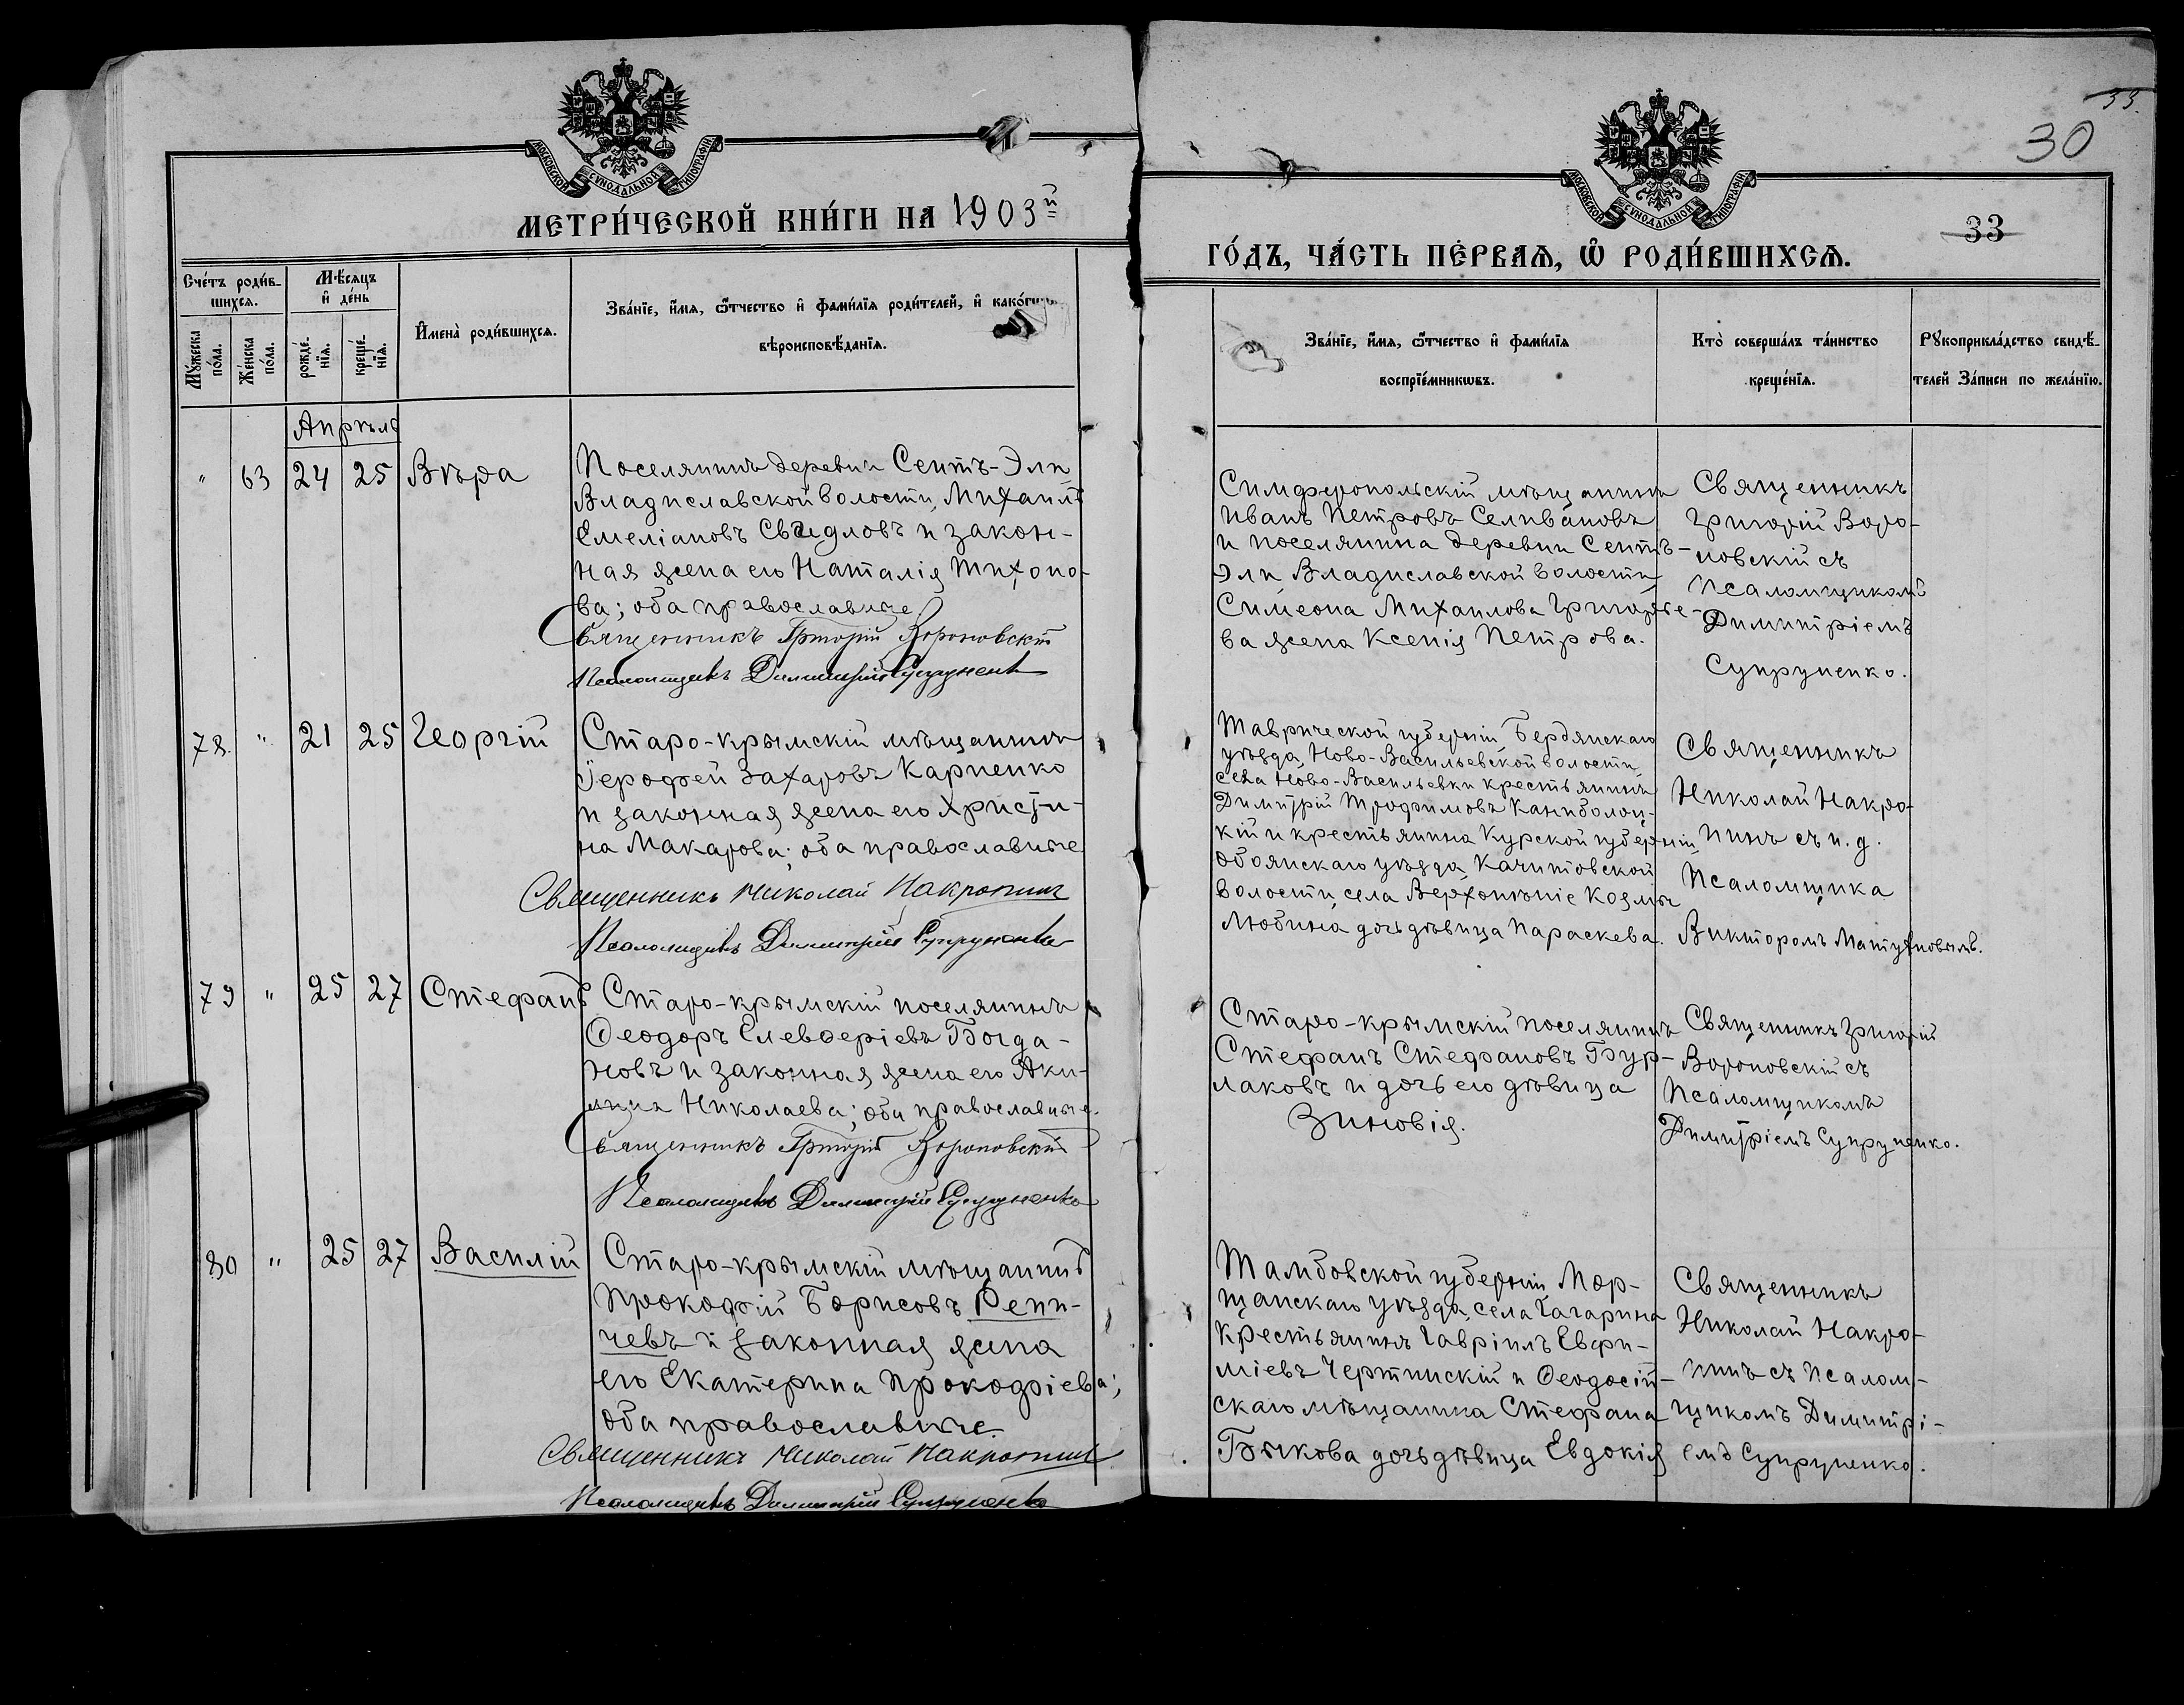 МОСКОВСКОЙ СѴНОДАЛЬНОЙ ТИПОГРАФІИ
МЕТРИ́ЧЕСКОЙ КНИ́ГИ НА 1903й
Сче́тъ роди́в-
шихся.
Мѣ́сяцъ
и҆ де́нь
Мꙋ́жеска
по́ла.
Же́нска
по́ла.
рожде́-
нїя.
креще́-
нїя.
И҆мена̀ роди́вшихся.
Зва́нїе, и҆́мя, ѻ҆́тчество и҆ фами́лїя роди́телей, и҆ како́гѡ
вѣроисповѣ́данїя.
Апрѣль
" 63 24 25 Вѣра
Поселянинъ деревни Сеитъ-Эли
Владиславской волости, Михаилъ
Емеліановъ Свѣдловъ и закон-
ная жена его Наталія Тихоно-
ва; оба православные
Священникъ Григорій Вороновскій
Псаломщикъ Димитрій Супруненко
78. " 21 25 Георгій
Старо-крымскій мѣщанинъ
Іерофей Захаровъ Карпенко
и законная жена его Христи-
на Макарова; оба православные
Священникъ Николай Накропинъ
Псаломщикъ Димитрій Супруненко
79 " 25 27 Стефанъ
Старо-крымскій поселянинъ
Ѳеодоръ Елевѳеріевъ Богда-
новъ и законная жена его Аки-
лина Николаева; оба православные.
Священникъ Григорій Вороновскій
Псаломщикъ Димитрій Супруненко
80 " 25 27 Василій
Старо-крымскій мѣщанинъ
Прокофій Борисовъ Репи-
чевъ и законная жена
его Екатерина Прокофіева;
оба православные.
Священникъ Николай Накропинъ
Псаломщикъ Димитрій Супруненко
33
30
МОСКОВСКОЙ СѴНОДАЛЬНОЙ ТИПОГРАФІИ
33
ГО́ДЪ, ЧА́СТЬ ПЕ́РВАЯ, Ѽ РОДИ́ВШИХСЯ.
Зва́нїе, и҆́мя, ѻ҆́тчество и҆ фами́лїя
воспрїе́мникѡвъ.
Кто̀ соверша́лъ та́инство
креще́нїя.
Рꙋкоприкла́дство свидѣ́-
телей За́писи по жела́нїю.
Симферопольскій мѣщанинъ
Иванъ Петровъ Селивановъ
и поселянина деревни Сеитъ-
Эли Владиславской волости
Симеона Михаилова Григорье-
ва жена Ксенія Петрова.
Священникъ
Григорій Воро-
новскій съ
псаломщикомъ
Димитріемъ
Супруненко.
Таврической губерніи, Бердянскаго
уѣзда, Ново-Васильевской волости,
села Ново-Васильевки крестьянинъ
Димитрій Трофимовъ Каниболоц-
кій и крестьянина Курской губерніи,
Обоянскаго уѣзда, Качитовской
волости, села Верхопѣніе Козмы
Любина дочь дѣвица Параскева.
Священникъ
Николай Накро-
пинъ съ и. д.
псаломщика
Викторомъ Матуяновымъ.
Старо-крымскій поселянинъ
Стефанъ Стефановъ Бур-
лаковъ и дочь его дѣвица
Зиновія.
Священникъ Григорій
Вороновскій съ
псаломщикомъ
Димитріемъ Супруненко.
Тамбовской губерніи, Мор-
шанскаго уѣзда, села Гагарина
крестьянинъ Гавріилъ Евфи-
міевъ Чертинскій и Ѳеодосій-
скаго мѣщанина Стефана
Быкова дочь дѣвица Евдокія
Священникъ
Николай Накро-
пинъ съ псалом-
щикомъ Димитрі-
емъ Супруненко.